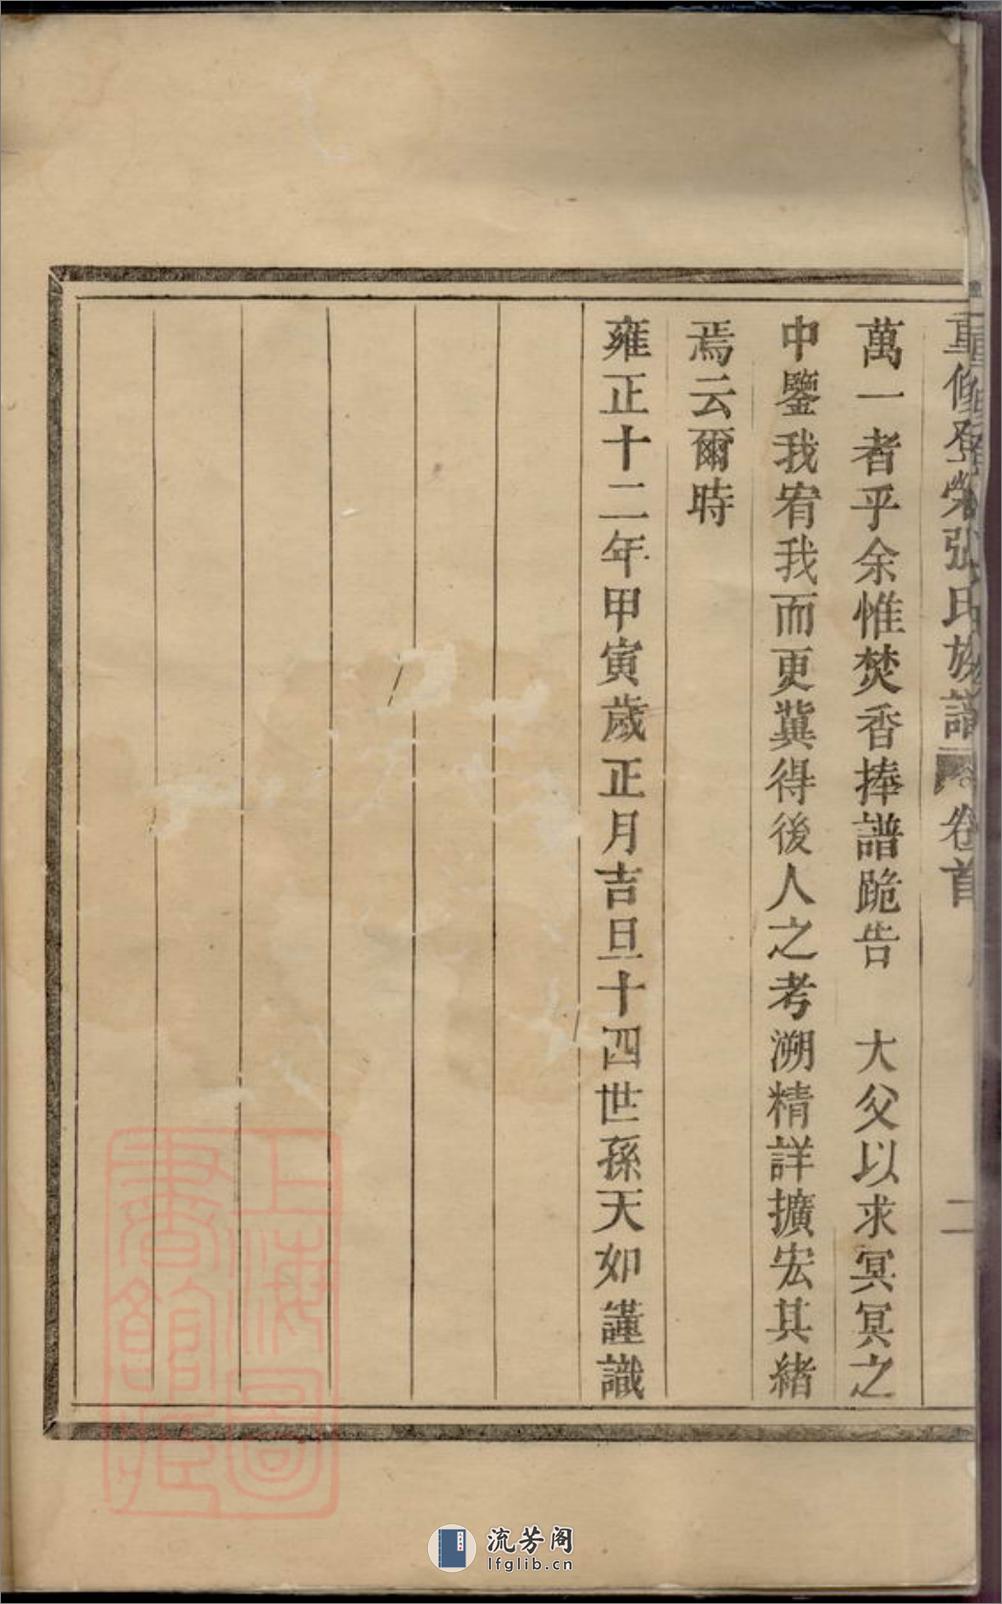 重修登榮張氏族譜 卷首 二
萬一者乎余惟焚香捧譜跪告　大父以求冥冥之
中鑒我宥我而更冀得後人之考溯精詳擴宏其緒
焉云爾時
雍正十二年甲寅歲正月吉旦十四世孫天如謹識
上海圖
書館藏
流芳阁
lfglib.cn